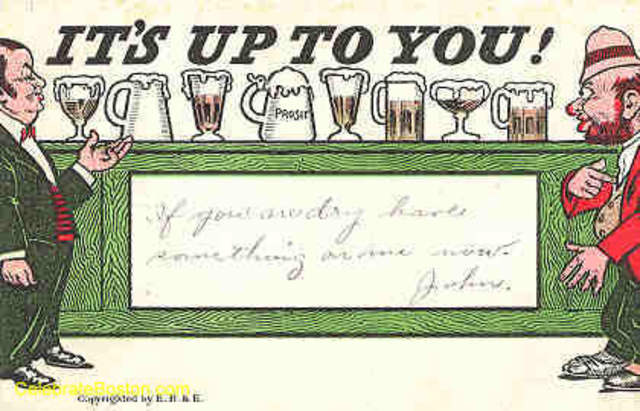 IT'S UP TO YOU!
PROSIT
If you are dry have
something on me now.
John.
CelebrateBoston.com
Copyrighted by E. B. & E.